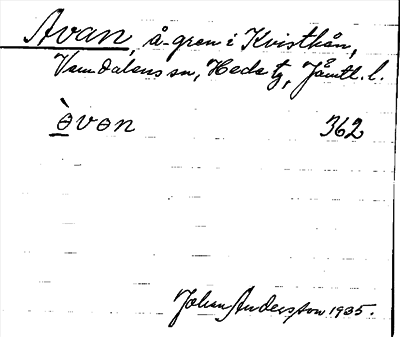 Avan, å-gren i Kvistkån,
Vemdalens sn, Heds tg, Jämtl. l.
ὲvɵn 362
Johan Andersson 1935.